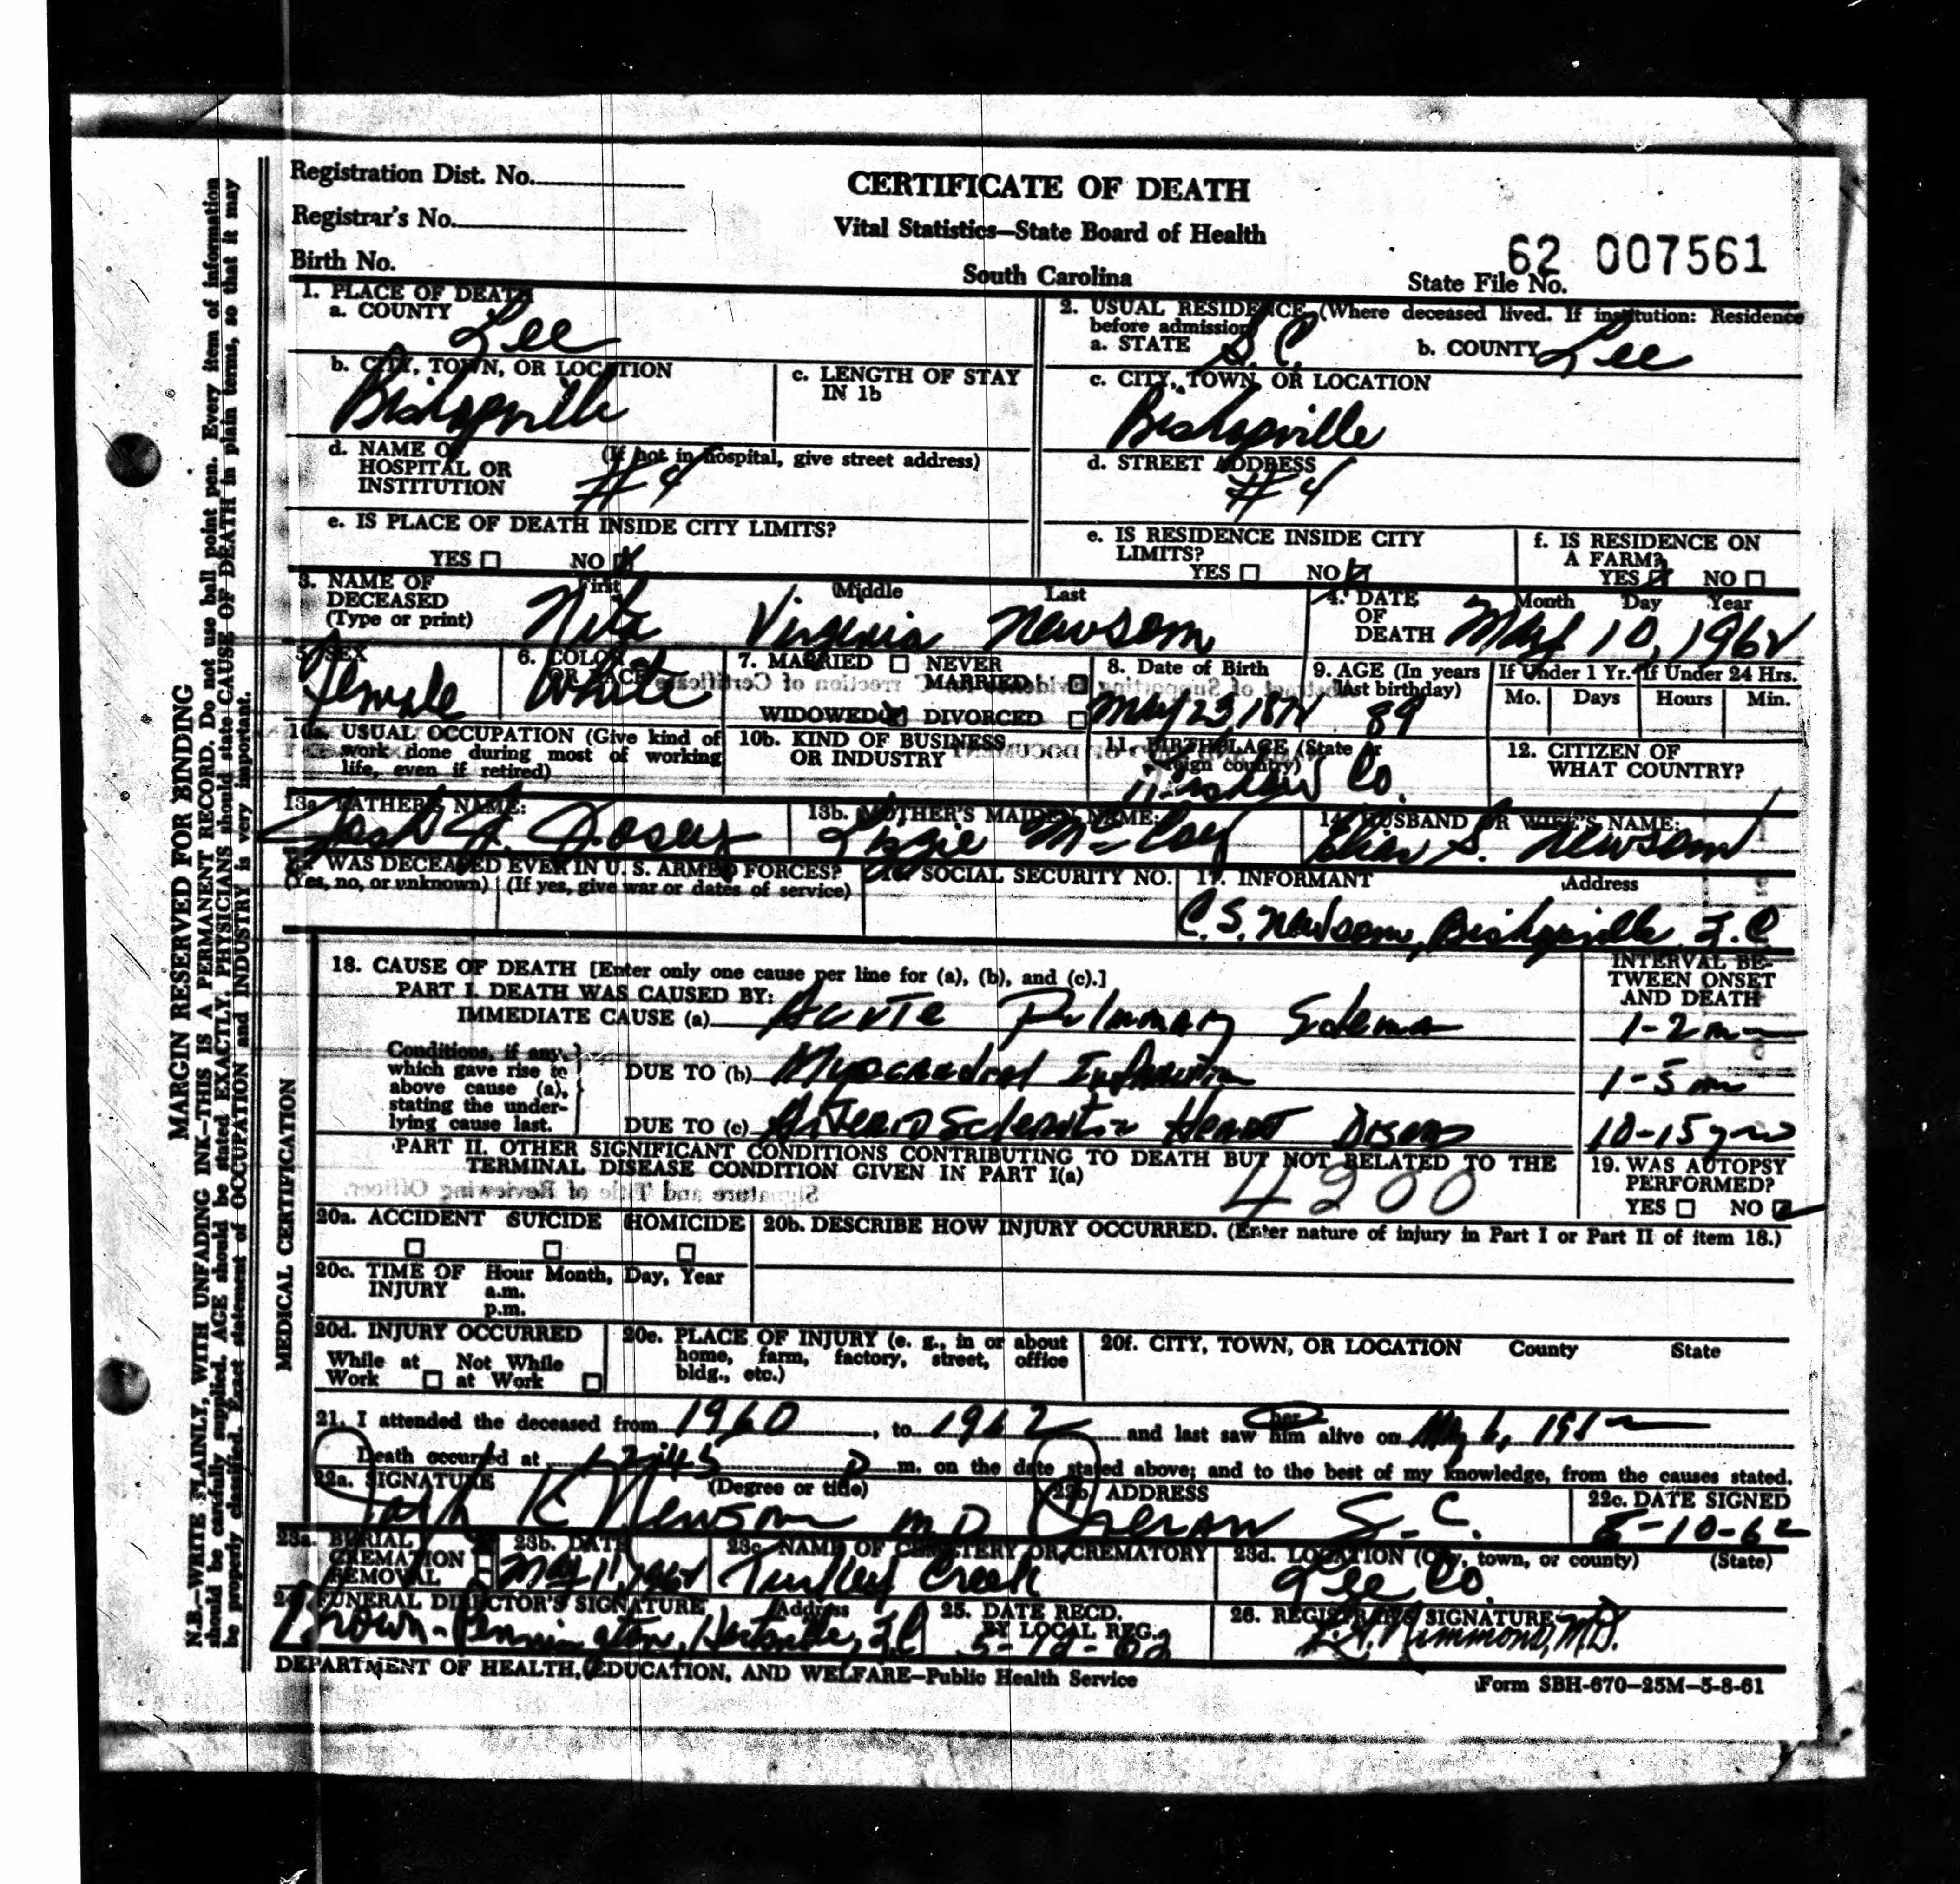 Registration Dist. No.
CERTIFICATE OF DEATH
Registrar's No.
Vital Statistics—State Board of Health
62 007561
Birth No.
South Carolina
State File No.
1. PLACE OF DEATH
a. COUNTY Lee
2. USUAL RESIDENCE (Where deceased lived. If institution: Residence before admission)
a. STATE S.C. b. COUNTY Lee
b. CITY, TOWN, OR LOCATION
Bishopville
c. LENGTH OF STAY IN 1b
c. CITY, TOWN, OR LOCATION
Bishopville
d. NAME OF HOSPITAL OR INSTITUTION (If not in hospital, give street address)
#4
d. STREET ADDRESS
#4
e. IS PLACE OF DEATH INSIDE CITY LIMITS?
YES NO X
e. IS RESIDENCE INSIDE CITY LIMITS?
YES NO
f. IS RESIDENCE ON A FARM?
YES NO
3. NAME OF DECEASED (Type or print)
First Middle Last
Virginia Newsom
4. DATE OF DEATH
Month Day Year
May 10, 1962
5. SEX
Female
6. COLOR OR RACE
White
7. MARRIED NEVER MARRIED
WIDOWED DIVORCED
8. Date of Birth
May 23
9. AGE (In years last birthday)
89
If Under 1 Yr. If Under 24 Hrs.
Mo. Days Hours Min.
10a. USUAL OCCUPATION (Give kind of work done during most of working life, even if retired)
10b. KIND OF BUSINESS OR INDUSTRY
11. BIRTHPLACE (State or foreign country)
Kershaw Co.
12. CITIZEN OF WHAT COUNTRY?
13a. FATHER'S NAME:
Josey
13b. MOTHER'S MAIDEN NAME:
Lizzie
14. HUSBAND OR WIFE'S NAME:
S. Newsom
15. WAS DECEASED EVER IN U. S. ARMED FORCES?
(Yes, no, or unknown) (If yes, give war or dates of service)
16. SOCIAL SECURITY NO.
17. INFORMANT Address
C. S. Newsom, Bishopville, S.C
MEDICAL CERTIFICATION
18. CAUSE OF DEATH [Enter only one cause per line for (a), (b), and (c).]
PART I. DEATH WAS CAUSED BY:
IMMEDIATE CAUSE (a) Acute Pulmonary Edema
INTERVAL BETWEEN ONSET AND DEATH
1-2
Conditions, if any, which gave rise to above cause (a), stating the underlying cause last.
DUE TO (b) Myocardial Infarction
1-5
DUE TO (c) Arteriosclerotic Heart Disease
10-15 yrs
PART II. OTHER SIGNIFICANT CONDITIONS CONTRIBUTING TO DEATH BUT NOT RELATED TO THE TERMINAL DISEASE CONDITION GIVEN IN PART I(a)
4200
19. WAS AUTOPSY PERFORMED?
YES NO
20a. ACCIDENT SUICIDE HOMICIDE
20b. DESCRIBE HOW INJURY OCCURRED. (Enter nature of injury in Part I or Part II of item 18.)
20c. TIME OF INJURY Hour Month, Day, Year
a.m.
p.m.
20d. INJURY OCCURRED
While at Work Not While at Work
20e. PLACE OF INJURY (e. g., in or about home, farm, factory, street, office bldg., etc.)
20f. CITY, TOWN, OR LOCATION County State
21. I attended the deceased from 1960, to 1962 and last saw her him alive on May 6, 1962
Death occurred at 12:45 p m. on the date stated above; and to the best of my knowledge, from the causes stated.
22a. SIGNATURE (Degree or title)
K Newsom MD
22b. ADDRESS
Cheraw S.C.
22c. DATE SIGNED
5-10-62
23a. BURIAL CREMATION REMOVAL
23b. DATE
May 11, 1962
23c. NAME OF CEMETERY OR CREMATORY
Turkey Creek
23d. LOCATION (City, town, or county) (State)
Lee Co.
24. FUNERAL DIRECTOR'S SIGNATURE Address
Brown-Pennington, Hartsville, S.C
25. DATE RECD. BY LOCAL REG.
5-12-62
26. REGISTRAR'S SIGNATURE
Nimmons, M.D.
DEPARTMENT OF HEALTH, EDUCATION, AND WELFARE—Public Health Service
Form SBH-670—25M—5-8-61
MARGIN RESERVED FOR BINDING
N.B.—WRITE PLAINLY, WITH UNFADING INK—THIS IS A PERMANENT RECORD. Do not use ball point pen. Every item of information
should be carefully supplied. AGE should be stated EXACTLY. PHYSICIANS should state CAUSE OF DEATH in plain terms, so that it may
be properly classified. Exact statement of OCCUPATION and INDUSTRY is very important.